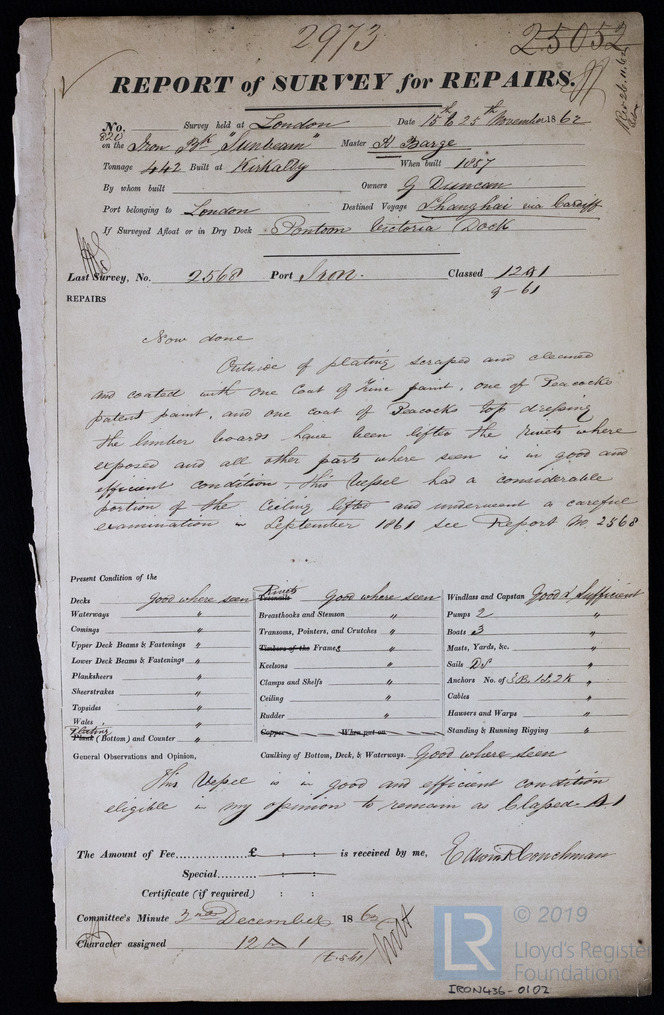 2973
25052
REPORT of SURVEY for REPAIRS.
No. 820 Survey held at London Date 15th to 25th November 1862
on the Iron Bk "Sunbeam" Master H Barge
Tonnage 442 Built at Kirkaldy When built 1857
By whom built Owners G Duncan
Port belonging to London Destined Voyage Shanghai via Cardiff
If Surveyed Afloat or in Dry Dock Pontoon Victoria Dock
Last Survey, No. 2568 Port Iron. Classed 12 A 1
9-61
REPAIRS
Now done
Outside of plating scraped and cleaned
and coated with one coat of Zinc paint, one of Peacocks
patent paint, and one coat of Peacocks top dressing
the limber boards have been lifted the rivets where
exposed and all other parts where seen is in good and
efficient condition, this Vessel had a considerable
portion of the Ceiling lifted and underwent a careful
examination in September 1861 see Report No. 2568
Present Condition of the
Decks Good where seen
Waterways "
Comings "
Upper Deck Beams & Fastenings "
Lower Deck Beams & Fastenings "
Planksheers "
Sheerstrakes "
Topsides "
Wales "
Plating
Plank (Bottom) and Counter "
Rivets
Treenails Good where seen
Breasthooks and Stemson "
Transoms, Pointers, and Crutches "
Timbers of the Frames "
Keelsons "
Clamps and Shelfs "
Ceiling "
Rudder "
Copper When put on
Caulking of Bottom, Deck, & Waterways. Good where seen
Windlass and Capstan Good & Sufficient
Pumps 2 "
Boats 3 "
Masts, Yards, &c. "
Sails DS "
Anchors No. of 3B, 1S, 2K "
Cables "
Hawsers and Warps "
Standing & Running Rigging "
General Observations and Opinion,
This Vessel is in good and efficient condition
eligible in my opinion to remain as Classed A1
The Amount of Fee............£ : : is received by me, Edwin R Couchman
Special............
Certificate (if required) : :
Committee's Minute 2nd December 1862
Character assigned 12 A 1
© 2019
LR
Lloyd's Register
Foundation
IRON436-0102